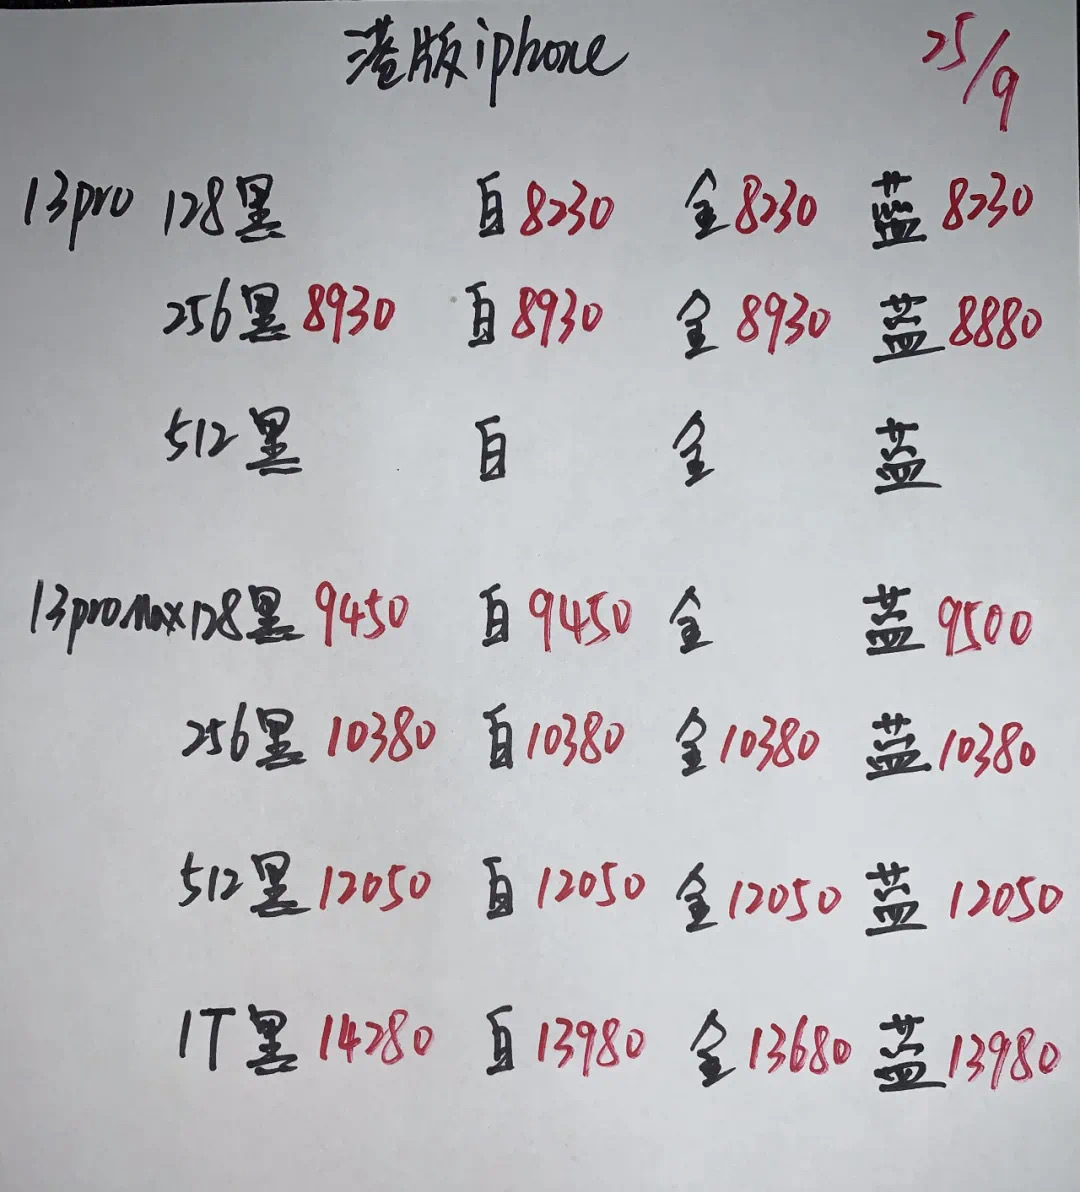 港版iphone 25/9
13pro 128黑 白8230 金8230 蓝8230
256黑8930 白8930 金8930 蓝8880
512黑 白 金 蓝
13promax128黑9450 白9450 金 蓝9500
256黑10380 白10380 金10380 蓝10380
512黑12050 白12050 金12050 蓝12050
1T黑14280 白13980 金13680 蓝13980